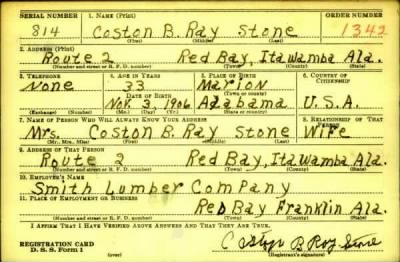 SERIAL NUMBER 1. NAME (Print) ORDER NUMBER
814 Coston B. Ray Stone 1342
(First) (Middle) (Last)
2. ADDRESS (Print)
Route 2 Red Bay, Itawamba Ala.
(Number and street or R. F. D. number) (Town) (County) (State)
3. TELEPHONE 4. AGE IN YEARS 5. PLACE OF BIRTH 6. COUNTRY OF CITIZENSHIP
None 33 Marion
DATE OF BIRTH (Town or county)
Nov. 3, 1906 Alabama U.S.A.
(Exchange) (Number) (Mo.) (Day) (Yr.) (State or country)
7. NAME OF PERSON WHO WILL ALWAYS KNOW YOUR ADDRESS 8. RELATIONSHIP OF THAT PERSON
Mrs. Coston B. Ray Stone Wife
(Mr., Mrs., Miss) (First) (Middle) (Last)
9. ADDRESS OF THAT PERSON
Route 2 Red Bay, Itawamba Ala.
(Number and street or R. F. D. number) (Town) (County) (State)
10. EMPLOYER'S NAME
Smith Lumber Company
11. PLACE OF EMPLOYMENT OR BUSINESS
Red Bay Franklin Ala.
(Number and street or R. F. D. number) (Town) (County) (State)
I AFFIRM THAT I HAVE VERIFIED ABOVE ANSWERS AND THAT THEY ARE TRUE.
REGISTRATION CARD
D. S. S. Form 1 (over) (Registrant's signature)